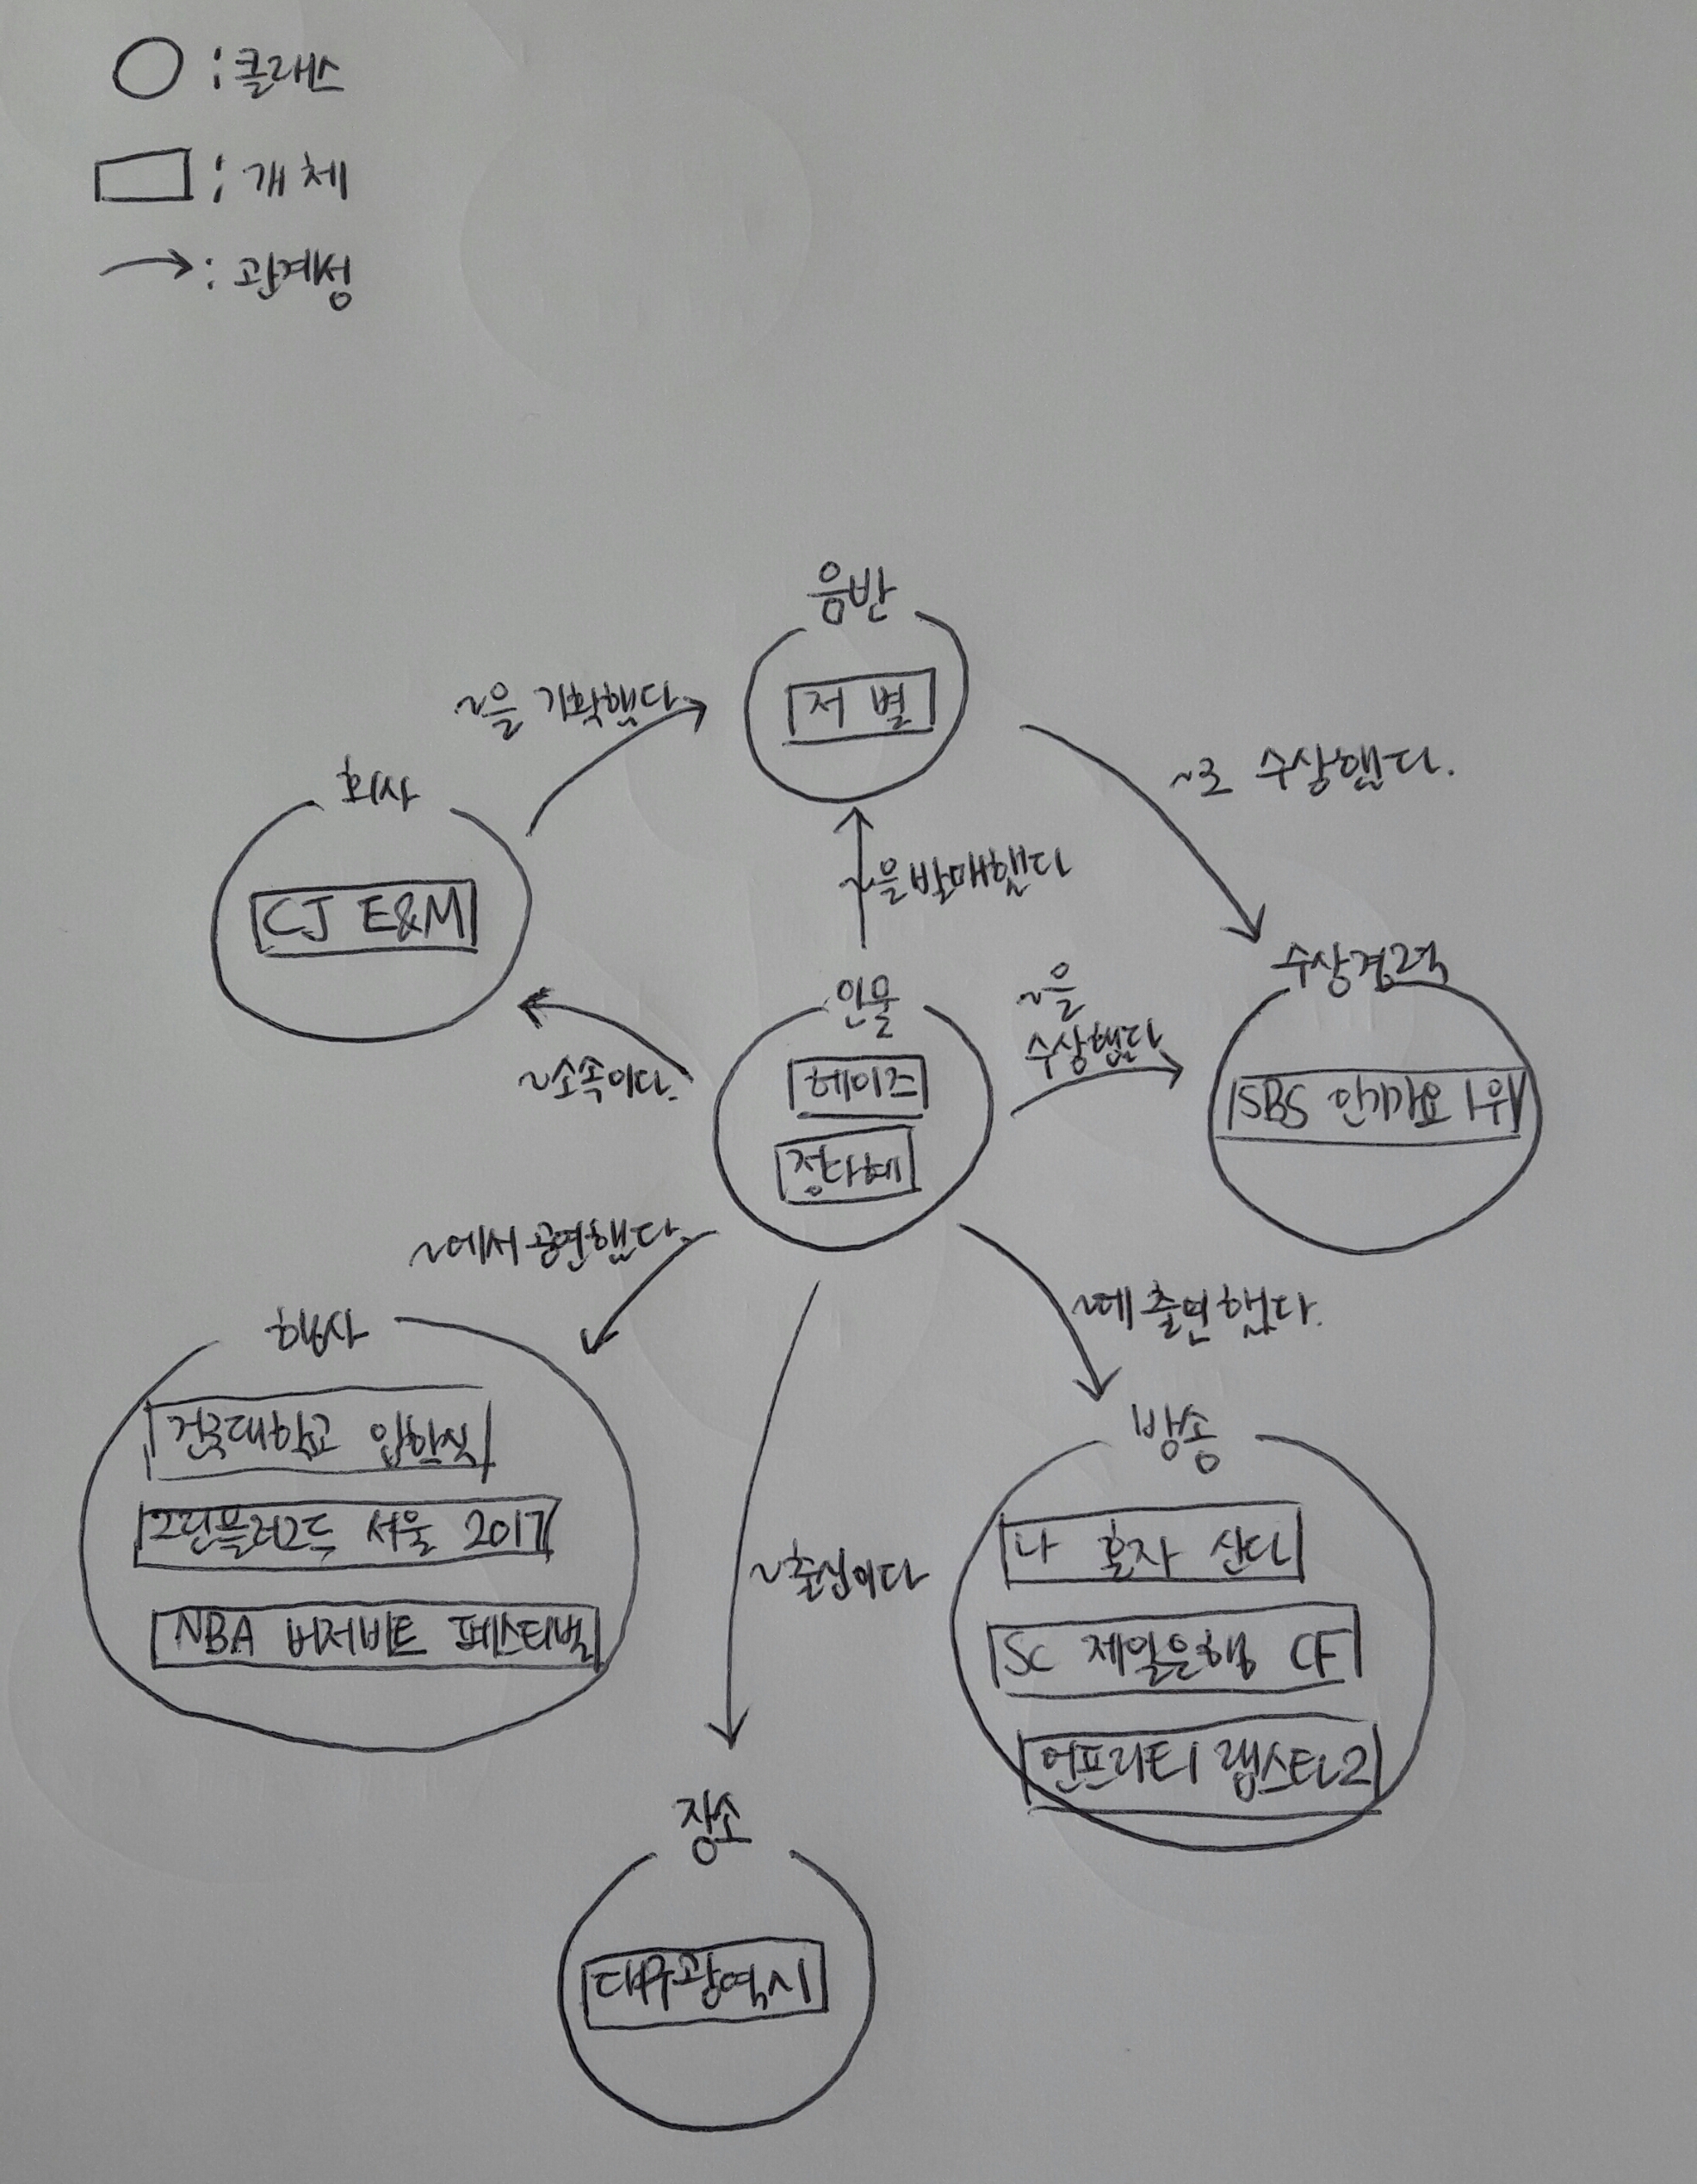 ○ : 클래스
□ : 개체
→ : 관계성
음반
저 별
~을 기획했다
~로 수상했다.
회사
CJ E&M
~을 발매했다
수상경력
SBS 인기가요 1위
인물
헤이즈
정다혜
~을
수상했다
~소속이다.
~에서 공연했다.
~에 출연했다.
행사
건국대학교 입학식
그린플러그드 서울 2017
NBA 버저비트 페스티벌
방송
나 혼자 산다
SC 제일은행 CF
언프리티 랩스타2
~출신이다
장소
대구광역시